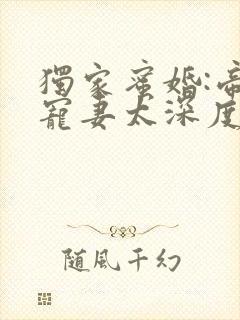 獨家蜜婚:帝
寵妻太深度
随風千幻